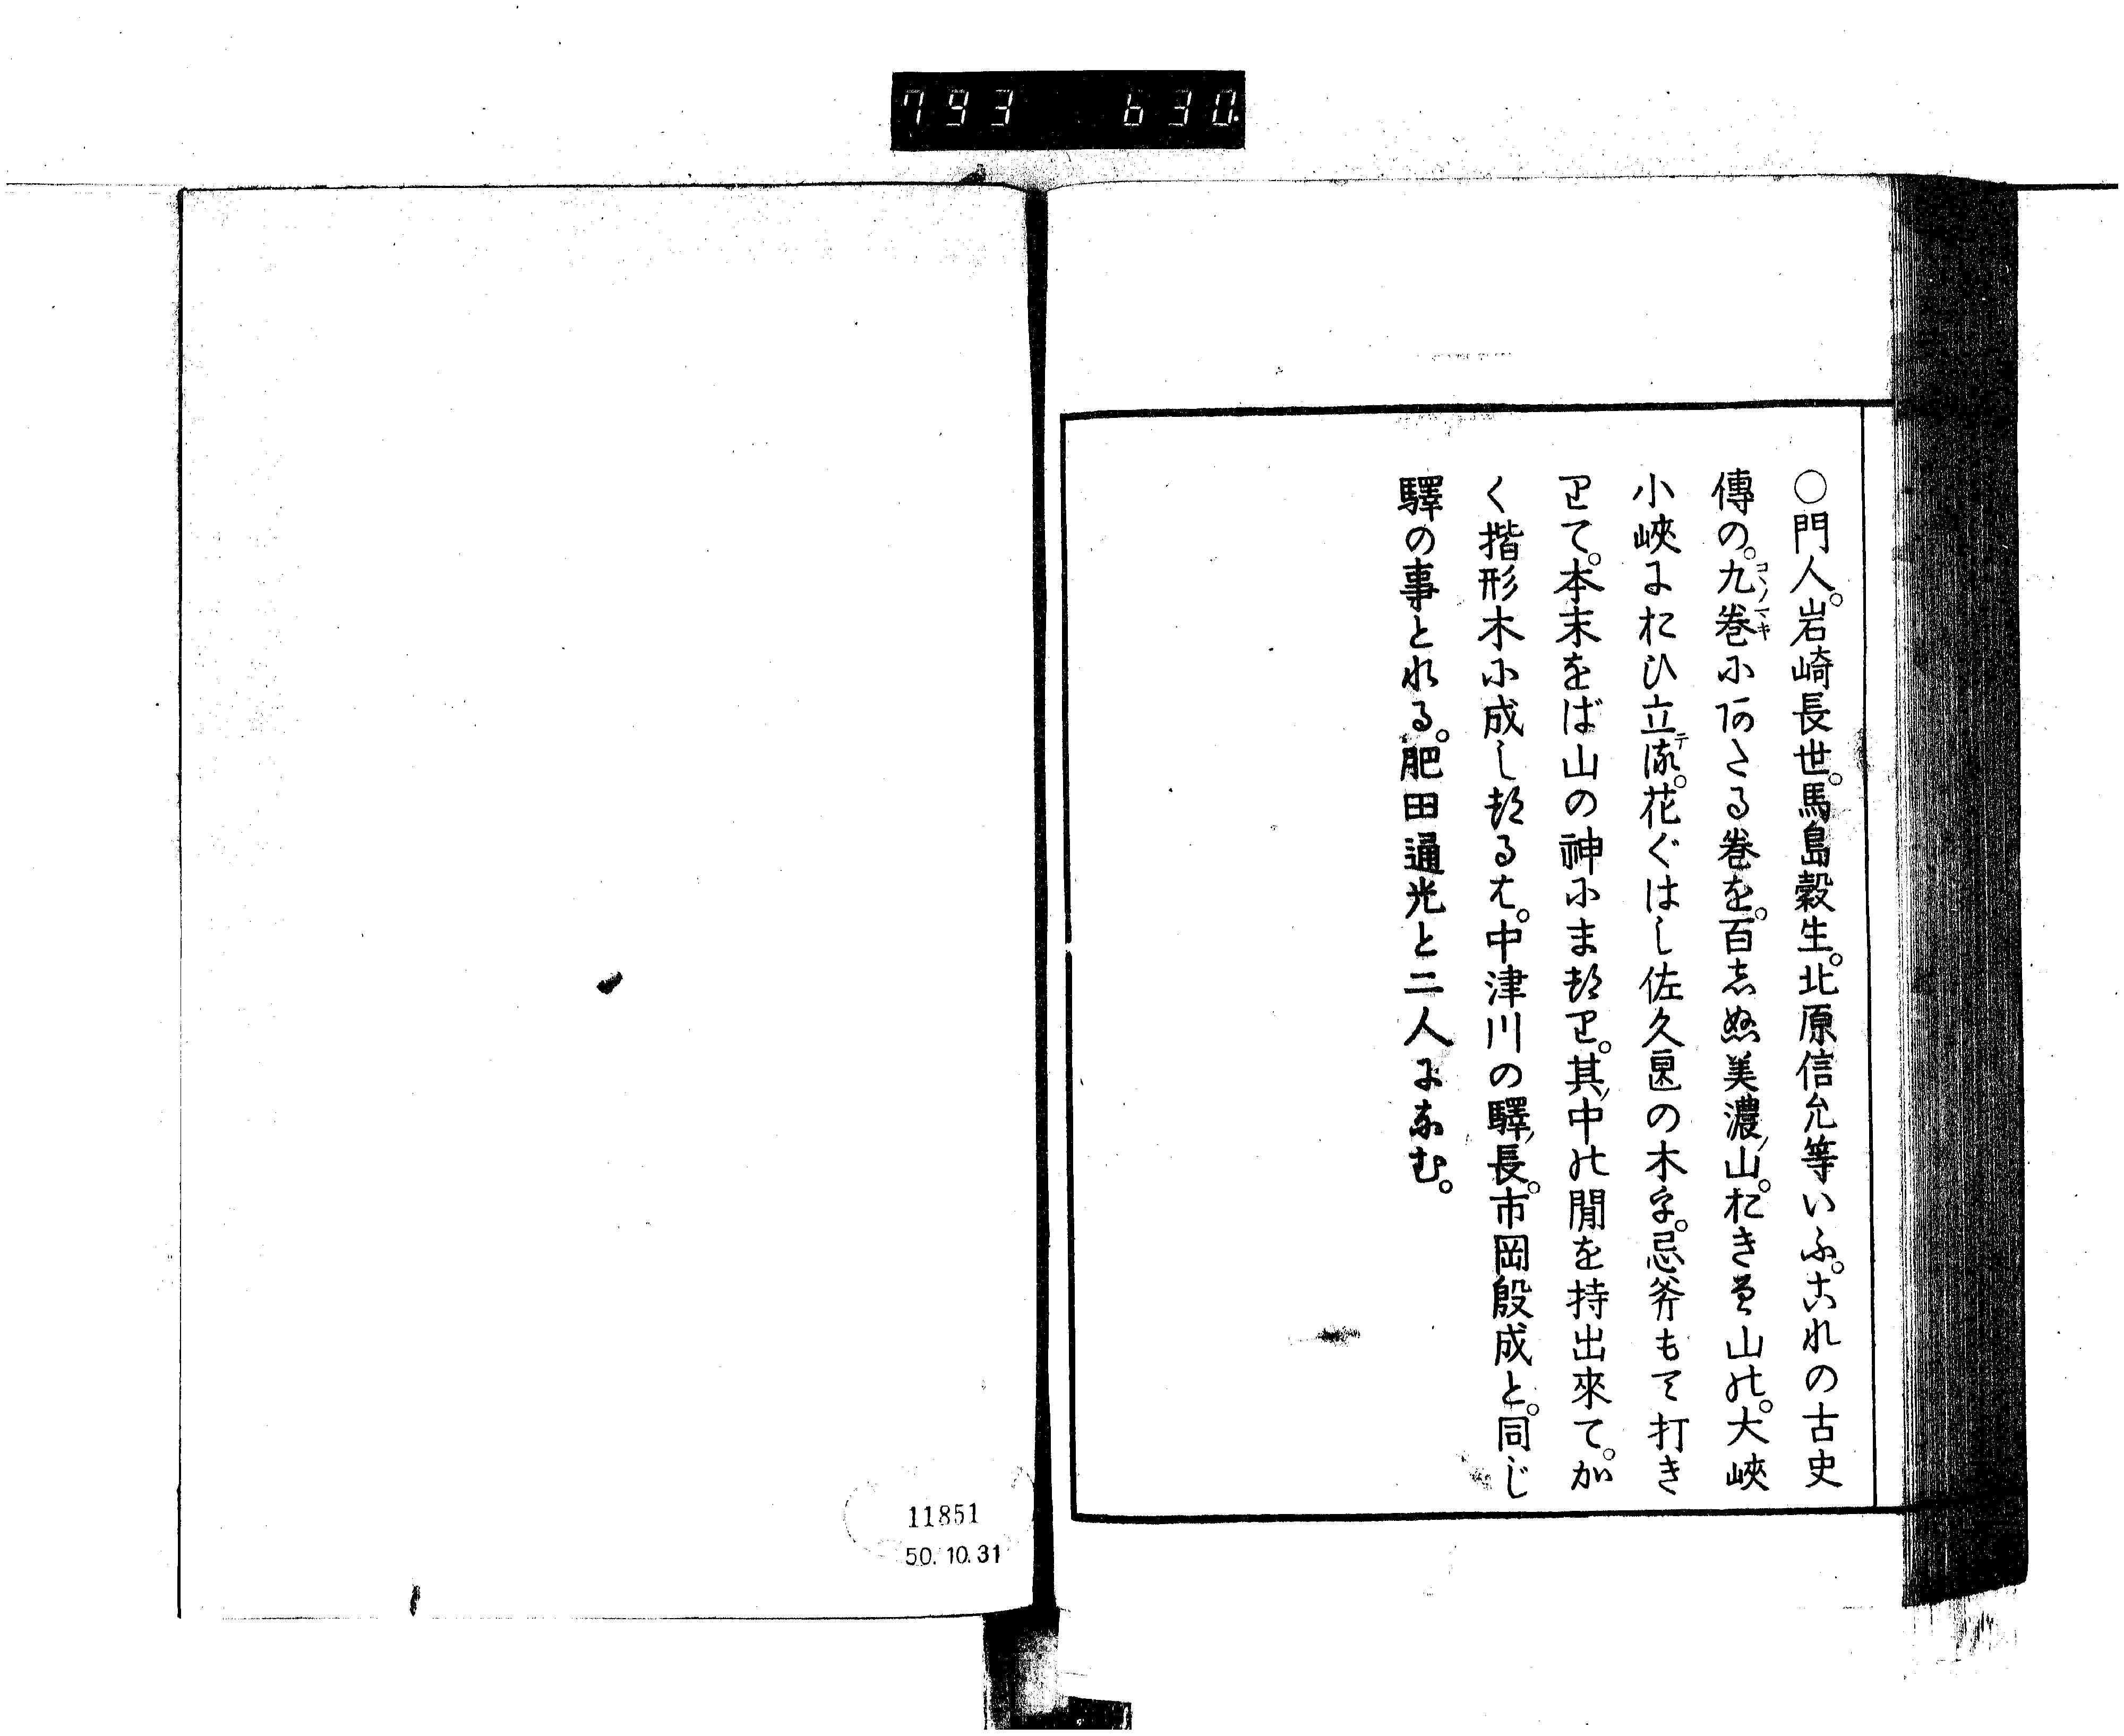 793 630.
○門人。岩崎長世。馬島穀生。北原信允等いふ。これの古史
傳の。九巻にあたる巻を。百しぬ美濃ノ山。おきそ山の。大峽
小峽におひ立流。花ぐはし佐久良の木を。忌斧もて打き
りて。本末をば山の神にまつり。其ノ中の間を持出來て。か
く揩形木に成しつるは。中津川の驛ノ長。市岡殷成と。同じ
驛の事とれる。肥田通光と二人になむ。
11851
50.10.31